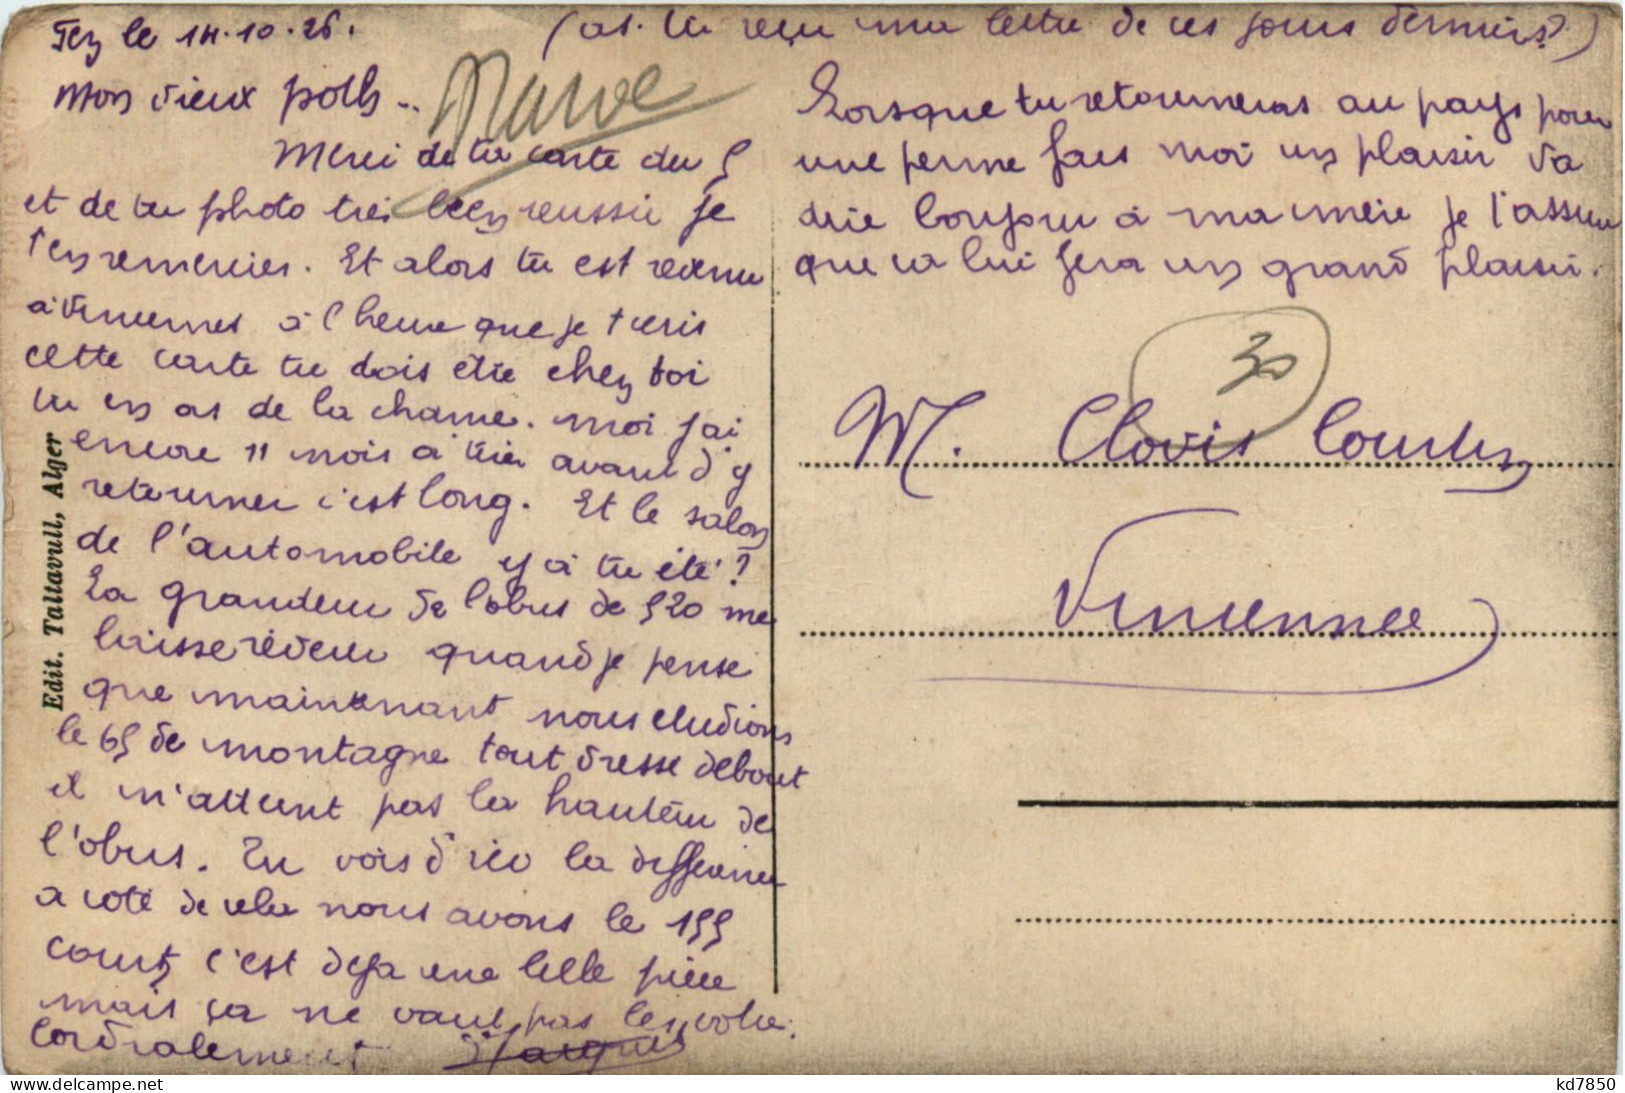 Fez le 14.10.26.
(as. tu reçu ma lettre de ces jours derniers?)
Mon vieux
Maroc
Merci de ta carte du 5
et de ta photo très bien reussie je
t'en remercier. Et alors tu est revenu
à Vincennes à l'heure que je t'ecris
cette carte tu dois être chez toi
tu en as de la chance. Moi j'ai
encore 11 mois à tirer avant d'y
retourner c'est long. Et le salon
de l'automobile y à tu été?
La grandeur de l'obus de 520 me
laisse rêveur quand je pense
que maintenant nous etudions
le 65 de montagne tout dresse debout
il n'atteint pas la hauteur de
l'obus. Tu vois d'ici la differance
a coté de cela nous avons le 155
court, c'est deja une belle pièce
mais ça ne vaut pas les votre.
Cordialement Jacques
Lorsque tu retourneras au pays pour
une perme fais moi un plaisir va
dire bonjour à ma mère je t'assure
que ca lui fera un grand plaisir.
30
M. Clovis Courtin
Vincennes
Edit. Taltavull, Alger
kd7850